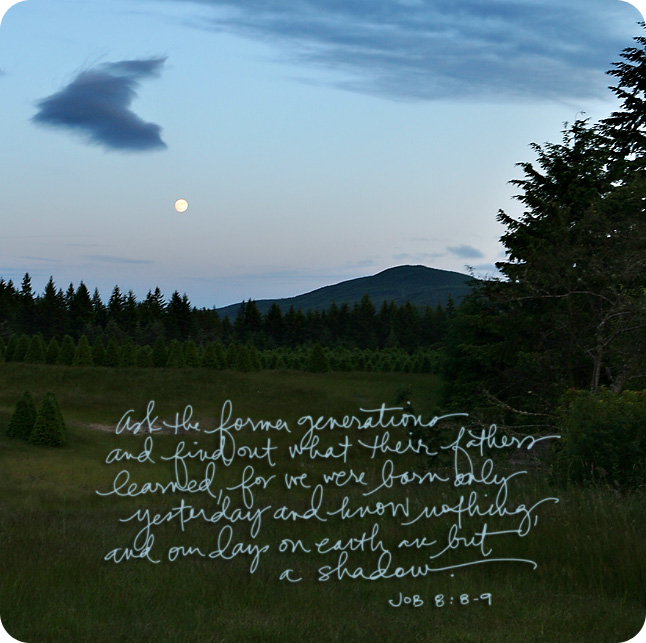 Ask the former generations
and find out what their fathers
learned, for we were born only
yesterday and know nothing,
and our days on earth are but
a shadow.
JOB 8:8-9